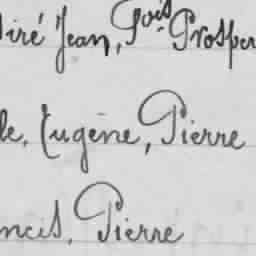 iré Jean, Fois Prosper
le, Eugène, Pierre
ncis, Pierre